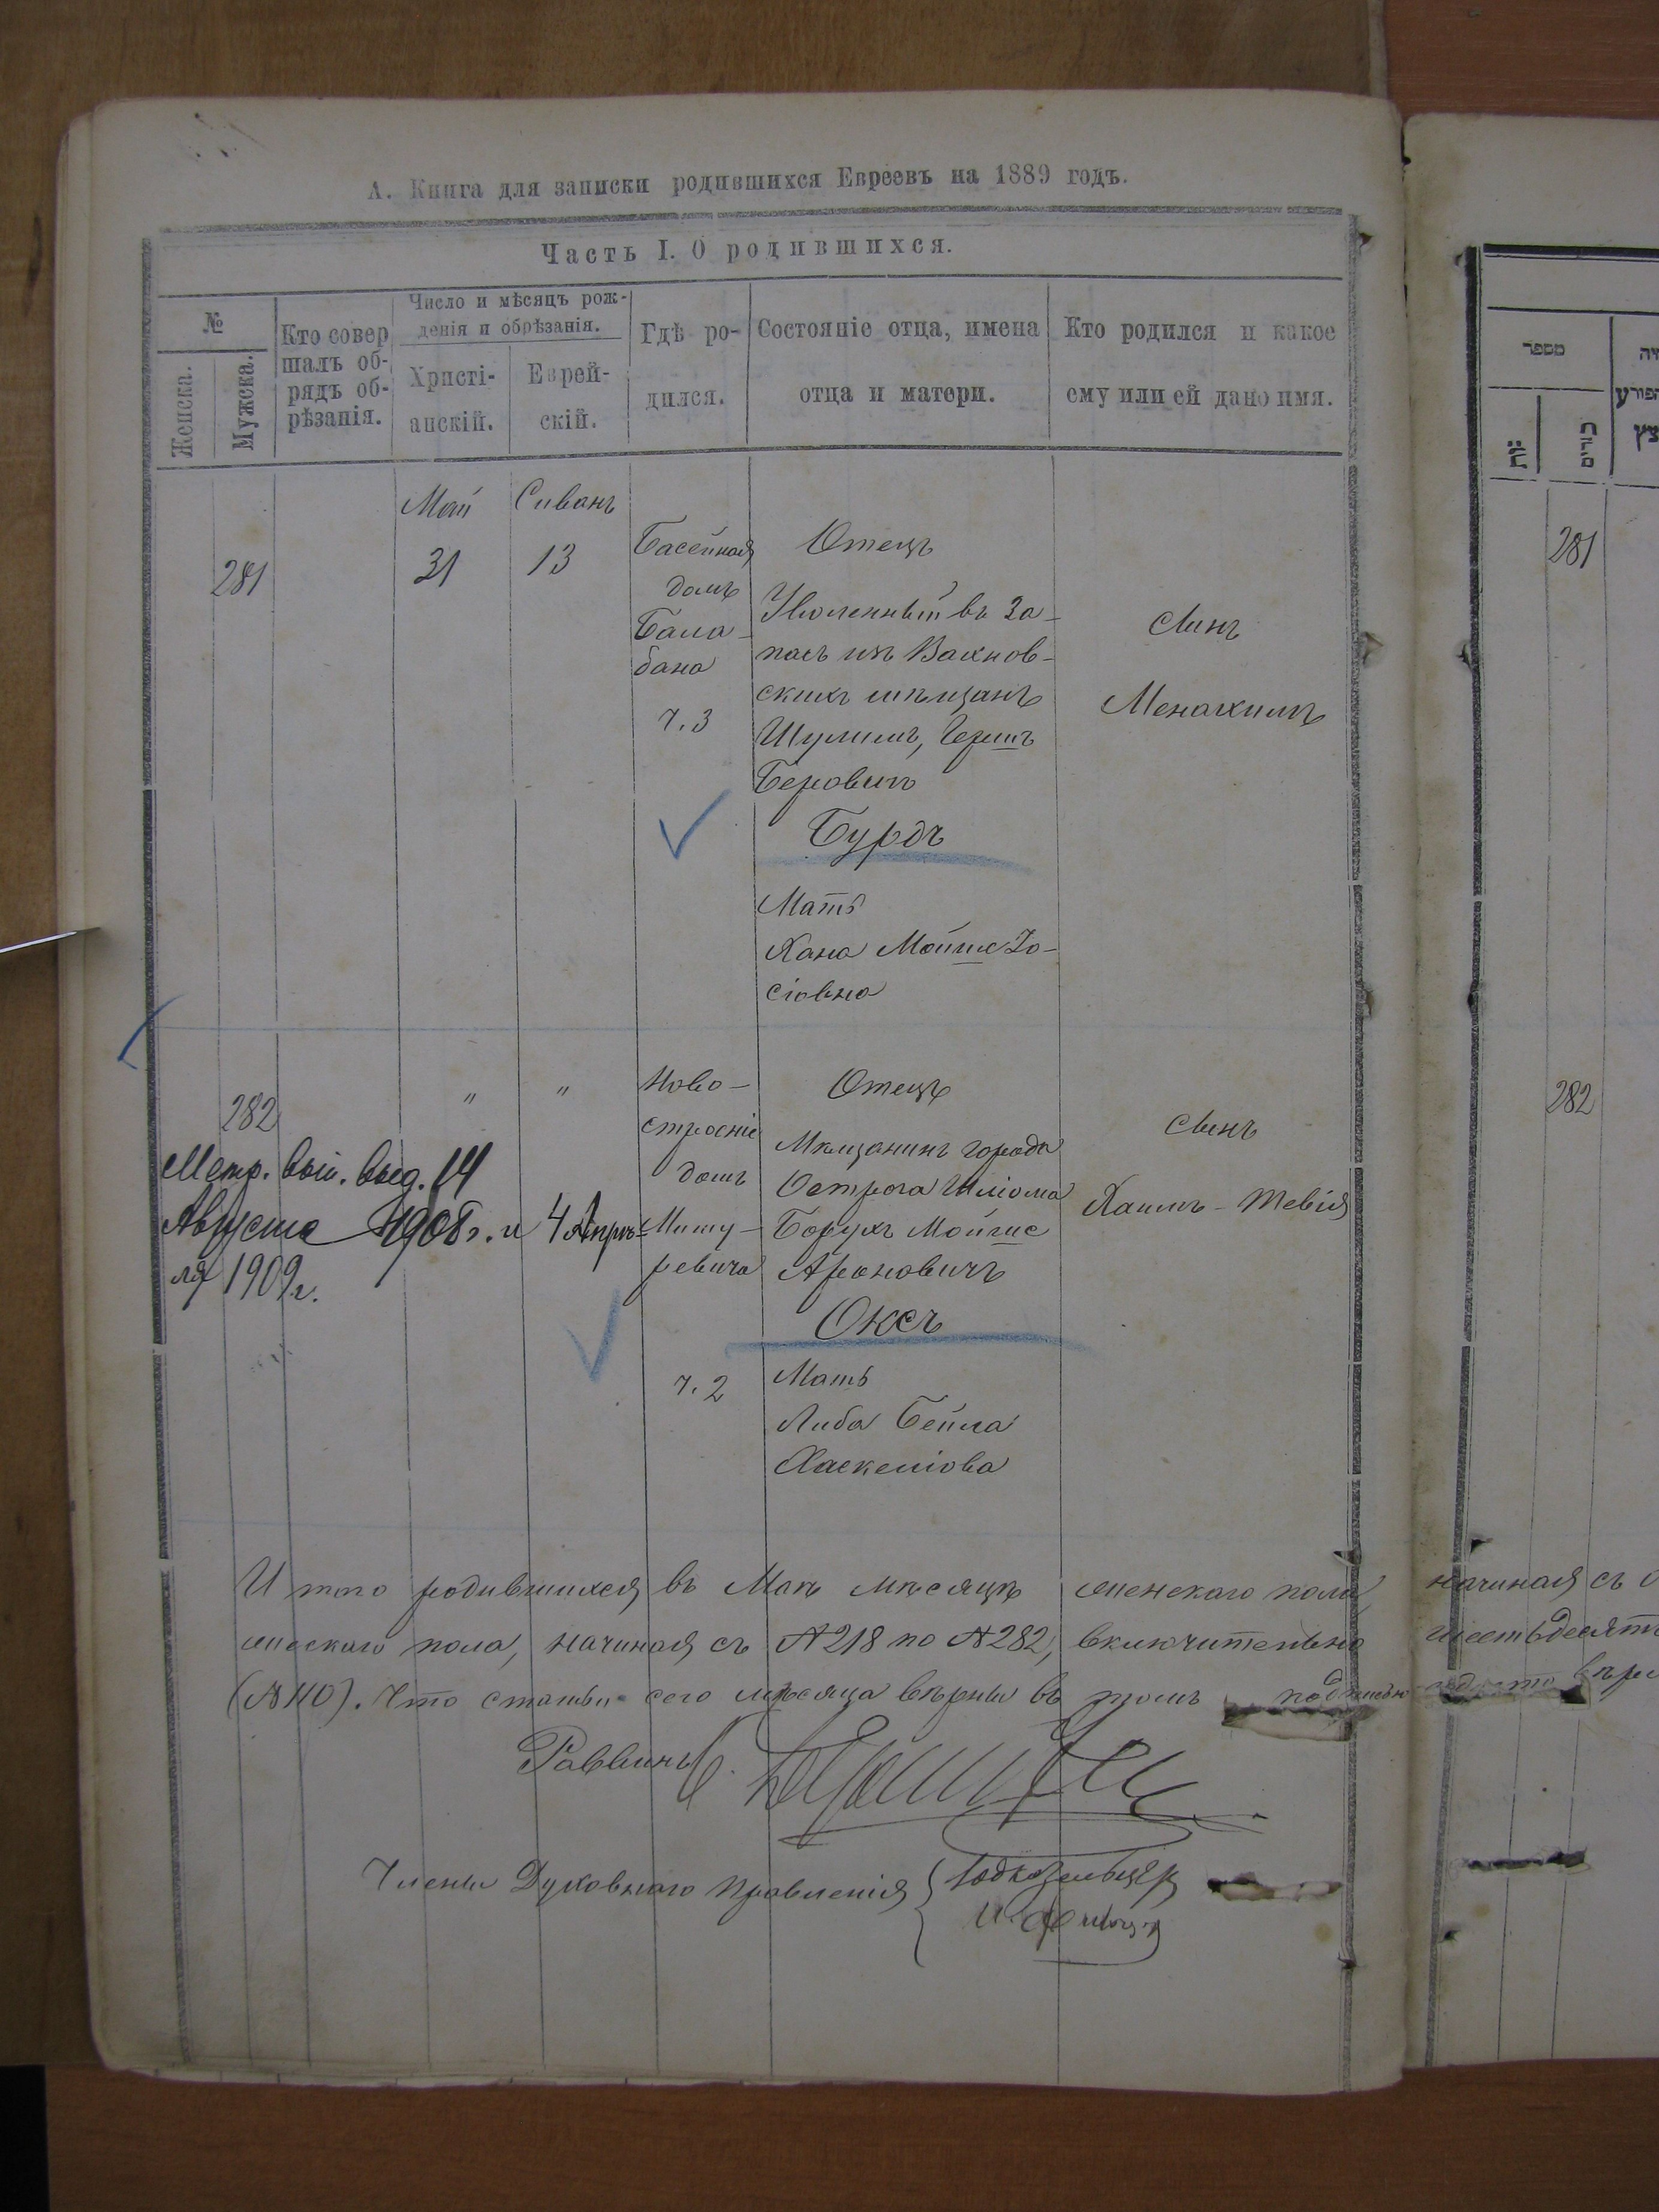 А. Книга для записки родившихся Евреевъ на 1889 годъ.
Часть I. О родившихся.
№
Женска.
Мужска.
Кто совер
шалъ об-
рядъ об-
рѣзанія.
Число и мѣсяцъ рож-
денія и обрѣзанія.
Христі-
анскій.
Еврей-
скій.
Гдѣ ро-
дился.
Состояніе отца, имена
отца и матери.
Кто родился и какое
ему или ей дано имя.
281
Май
31
Сиванъ
13
Басейная
домъ
Бала-
бана
ч. 3
Отецъ
Уволенный въ За-
пасъ изъ Вахнов-
скихъ мѣщанъ
Шулимъ, Гершъ
Беровичъ
Бурдъ
Мать
Хана Мойше Іо-
сіовна
Сынъ
Менахимъ
282
"
"
Метр. вып. выд. 14
Августа 1908 г. и 4 Апрѣ-
ля 1909 г.
Ново-
строеніе
домъ
Мишу-
ревича
ч. 2
Отецъ
Мѣщанинъ города
Острога Шліома
Борухъ Мойше
Ароновичъ
Оксъ
Мать
Либа Бейла
Хаскеліова
Сынъ
Хаимъ-Тевія
Итого родившихся въ Маѣ мѣсяцѣ женскаго пола
жескаго пола, начиная съ №218 по №282, включительно
(№110). Что статьи сего мѣсяца вѣрны въ томъ подписью
Раввинъ
Члены Духовнаго Правленія
מספר
281
282
начиная съ
шестьдесят